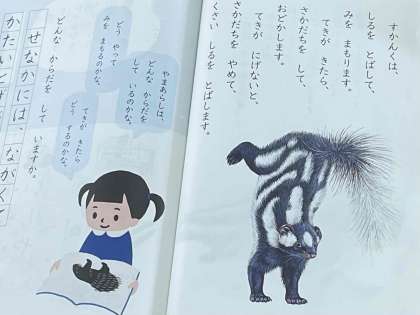 すかんくは、
しるを とばして、
みを まもります。
てきが きたら、
さかだちを して、
おどかします。
てきが にげないと、
さかだちを やめて、
くさい しるを とばします。
やまあらしは、
どんな からだを
して いるのかな。
どう やって
みを まもるのかな。
てきが きたら
どう するのかな。
どんな からだを
して いますか。
せなかには、ながくて
かたいとげ